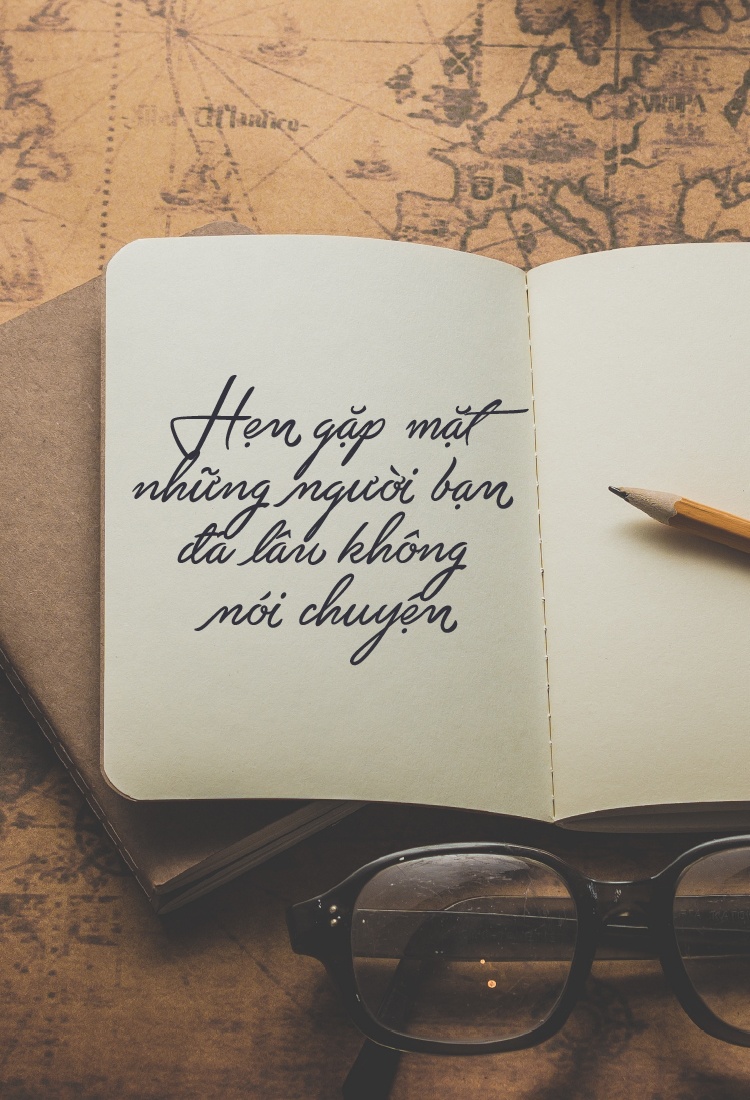 Mar Atlantico
EVROPA
Hẹn gặp mặt
những người bạn
đã lâu không
nói chuyện